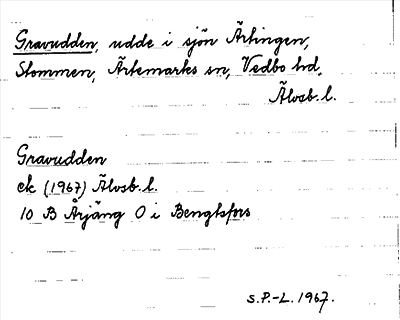 Gravudden, udde i sjön Ärtingen,
Stommen, Ärtemarks sn, Vedbo hd,
Älvsb. l.
Gravudden
ek (1967) Älvsb. l.
10 B Årjäng O i Bengtsfors
S.P.-L. 1967.